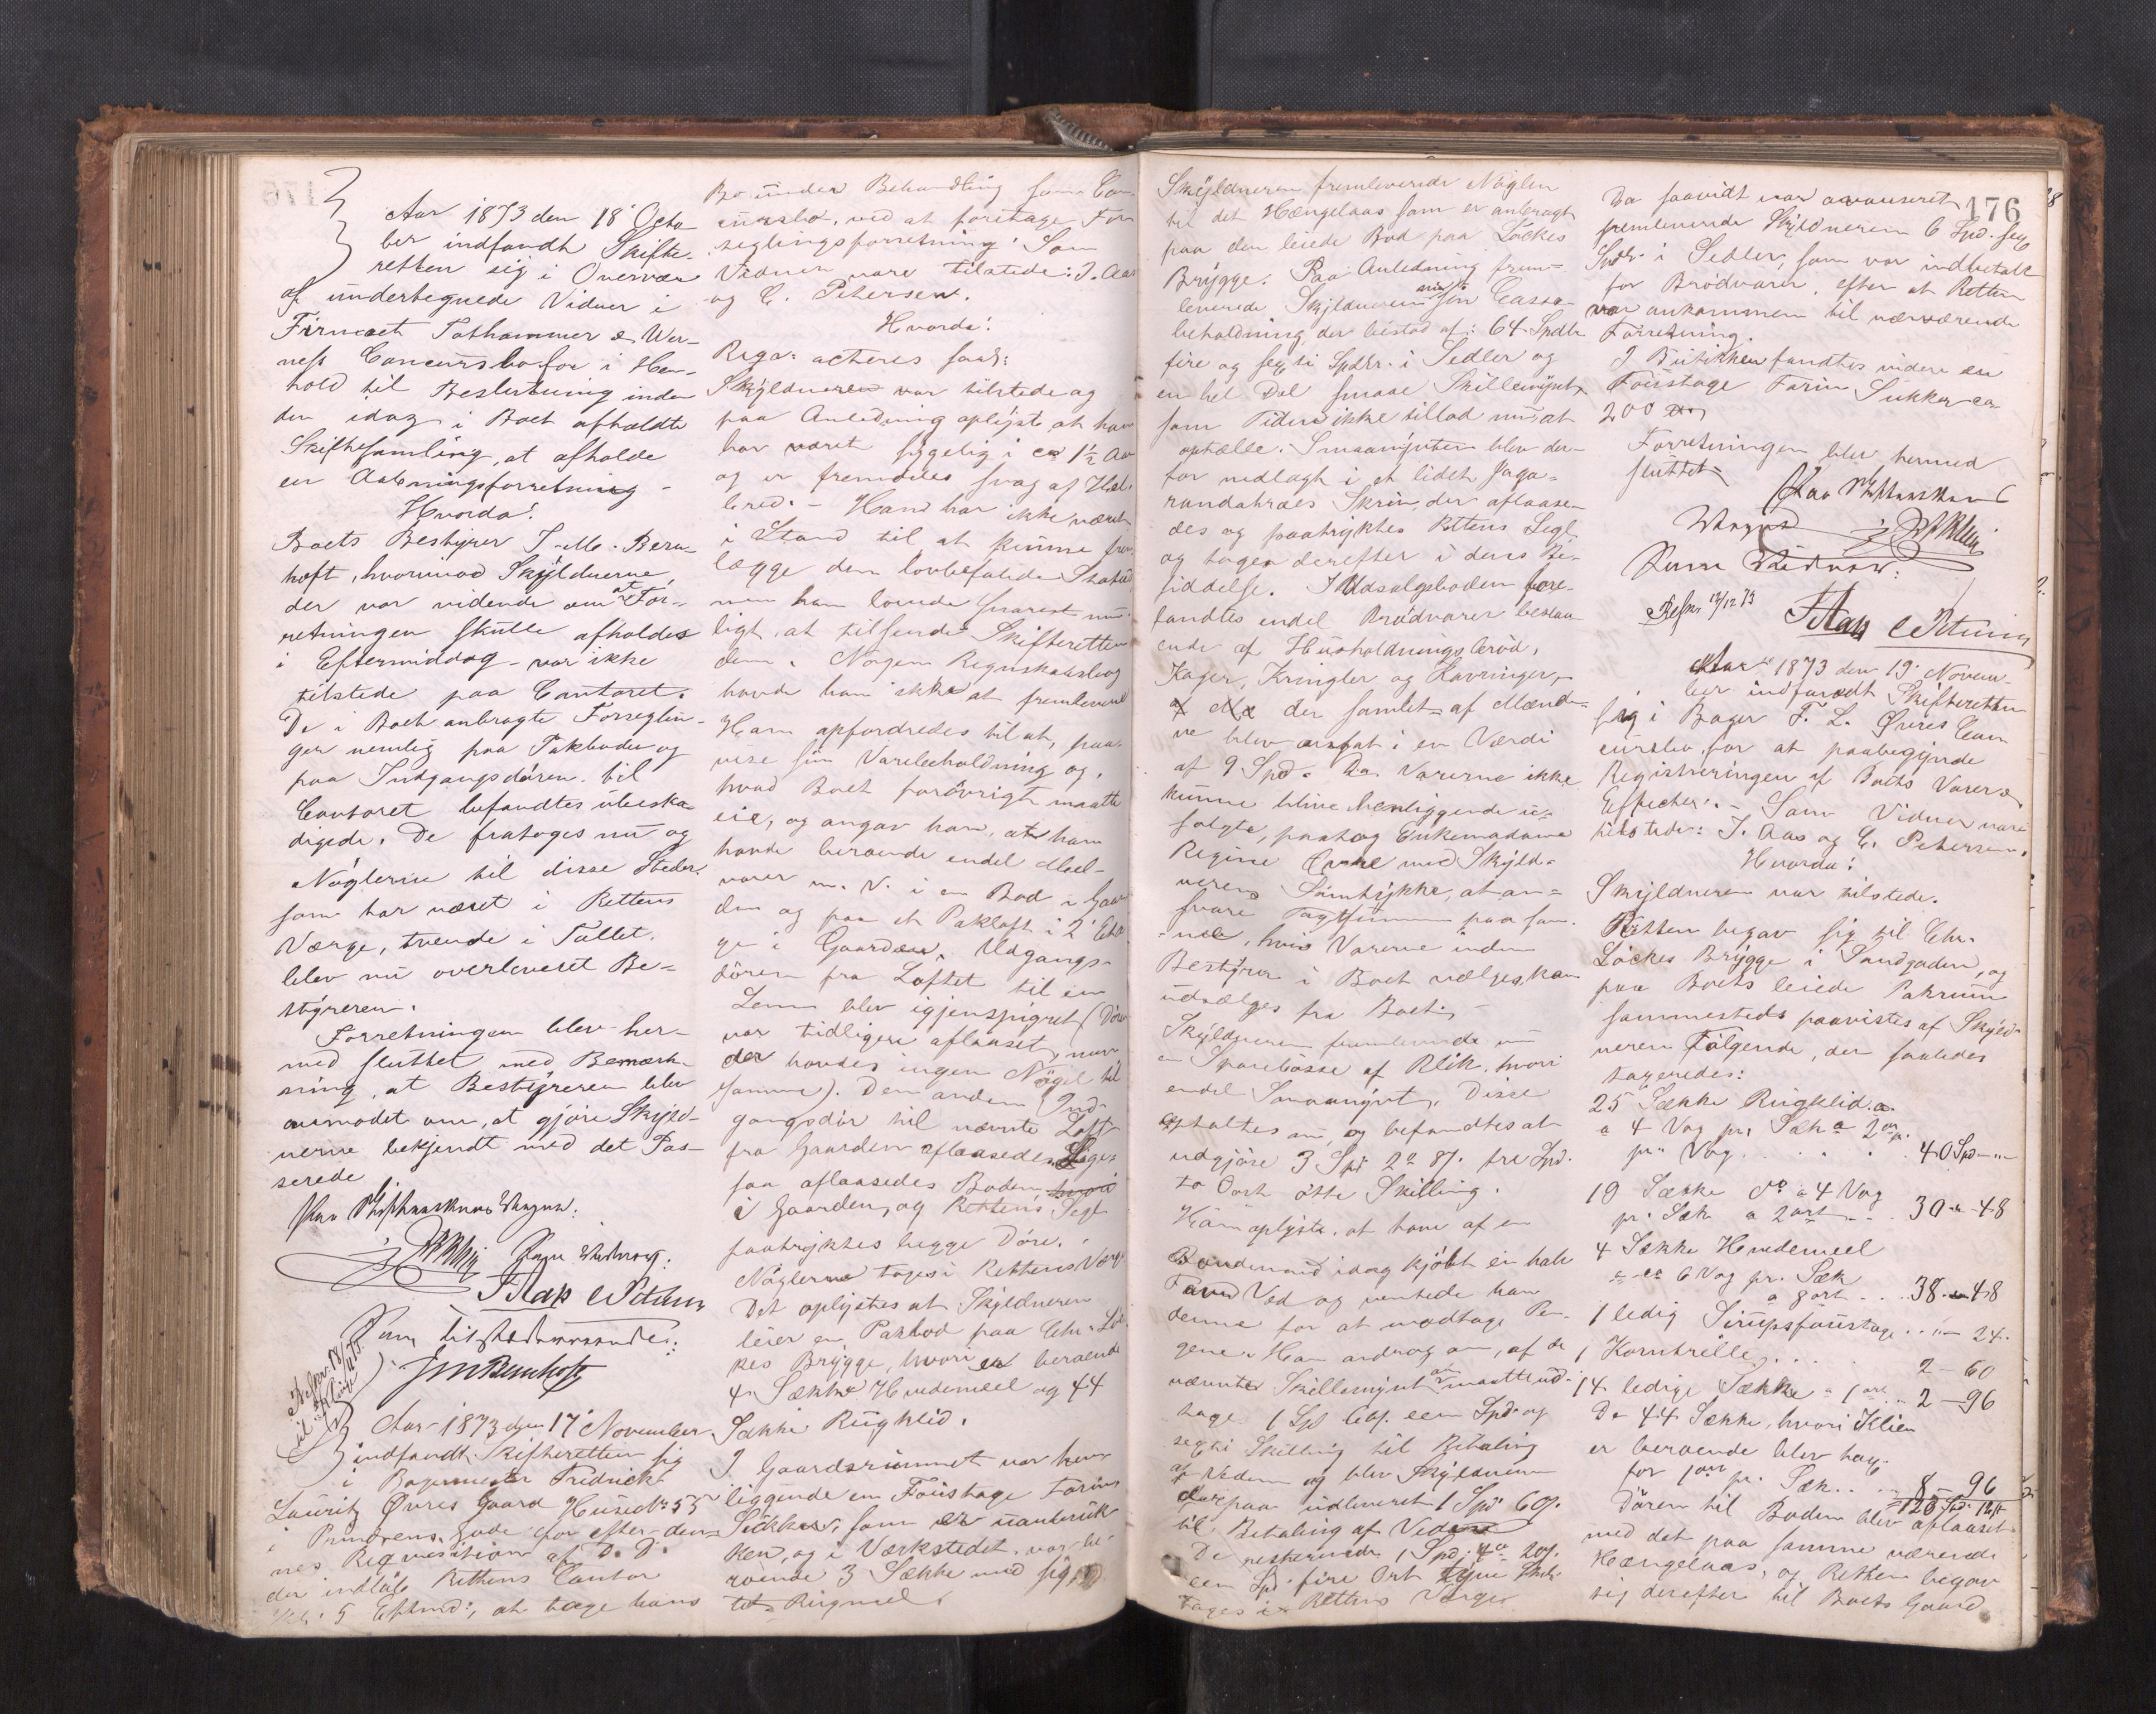 Aar 1873 den 18' Octo
ber indfandt Skifte-
retten sig i Overvær
af undertegnede Vidner i
Firmaet Tathammer & Wer-
ness Concursbo for i Hen-
hold til Beslutning inden
den idag i Boet afholdte
Skiftesamling, at afholde
en Aabningsforretning -
Hvorda!
Boets Bestyrer J. M. Bern-
hoft, hvorimod Skyldnerne,
der var vidende om at For-
retningen skulle afholdes
i Eftermiddag - var ikke
tilstede paa Contoret.
De i Boet anbragte Forseglin-
ger nemlig paa Pakboden og
paa Indgangsdøren til
Contoret befandtes ubeska-
digede. De fratoges nu og
Nøglerne til disse Steder,
som har været i Rettens
Værge, tvende i Tallet,
blev nu overleveret Be-
styreren.
Forretningen blev her-
med sluttet med Bemærk-
ning, at Bestyreren blev
anmodet om, at gjøre Skyld-
nerne bekjendt med det Pas-
serede
Som tilstedeværende:
JMBernhoft
Aar 1873 den 17' November
indfandt Skifteretten sig
i Bagermester Fredrick
Lauritz Øvres Gaard Huus No 55
i Prindsens gade for efter den-
nes Requisition af D. D.
der indløb Rettens Contor
Kl: 5 Eftmd:, at tage hans
Bo under Behandling som Con-
cursbo, ved at foretage For-
seglingsforretning. Som
Vidner vare tilstede: J. Aas
og C. Petersen.
Hvorda!
Reqv: acteres saal:
Skyldneren var tilstede og
paa Anledning oplyste at han
har været sygelig i ca 1½ Aar
og er fremdeles svag af Hel-
bred. - Han har ikke været
i Stand til at kunne frem-
lægge den lovbefalede Status,
men han lovede snarest mu-
ligt, at tilsende Skifteretten
den. Nogen Regnskabsbog
havde han ikke at fremlevere
Han opfordredes til at, paa-
vise sin Varebeholdning og,
hvad Boet forøvrigt maatte
eie, og angav han, at han
havde beroende endel Meel-
varer m. V. i en Bod i Gaar-
den og paa et Pakloft i 2' Eta-
ge i Gaarden. Udgangs-
døren fra Loftet til en
Lem blev igjenspigret (Døren
var tidligere aflaaset, men
der havdes ingen Nøgel til
samme). Den anden Ind-
gangsdør til nævnte Loft
fra Gaarden aflaasedes. Lige-
saa aflaasedes Boden hvori
i Gaarden, og Rettens Segl
paatryktes begge Døre.
Nøglerne toges i Rettens Værge
Det oplystes at Skyldneren
leier en Pakbod paa Chr. Löc-
kes Brygge, hvori er beroende
4 Sække Hvedemeel og 44
Sække Rugklid.
I Gaardsrummet var hen-
liggende en Foustage Farin
Sukker, som
ken, og i Værkstedet var be-
roende 3 Sække med sig
tet Rugmeel.
176
Skyldneren fremleverede Nøglen
til det Hængelaas som er anbragt
paa den leiede Bod paa Löckes
Brygge. Paa Anledning frem-
leverede Skyldneren sin Cassa-
beholdning, der bestod af: 64 Spdlr
fire og sexti Spdlr. i Sedler og
en hel Del smaae Skillemynt
som Tiden ikke tillod nu at
optælle. Smaamynten blev der-
for nedlagt i et lidet Jaga-
randatræes Skrin, der aflaase-
des og paatryktes Rettens Segl
og toges derefter i dens Be-
siddelse. I Udsalgsboden fore-
fandtes endel Brødvarer bestaa-
ende af Husholdningsbrød,
Kager, Kringler og Kavringer,
der samlet af Mænde-
ne blev ansat i en Værdi
af 9 Spd. Da Varerne ikke
kunne blive henliggende u-
solgte, paatog Enkemadame
Regine med Skyld-
nerens Samtykke, at an-
svare Taxtsummen paa sam-
me, hvis Varerne inden
Bestyrer i Boet vælges, kan
udsælges fra Boet. -
Skyldneren fremleverede nu
en Sparebøsse af Blik, hvori
endel Smaamynt. Disse
optaltes nu, og befandtes at
udgjøre 3 Spd 2 o 8 s. tre Spd.
to Ort otte Skilling.
Han oplyste, at have af en
Bondemand idag kjøbt en halv
Favn Ved og ventede han
denne for at modtage Pen-
gene. Han androg om, af de
nævnte Skillemynt maatte ud-
tage 1 Spd 60 s. een Spd. og
sexti Skilling til Betaling
af Veden og blev Skyldneren
derpaa udleveret 1 Spd 60 s.
til Betaling af Veden
De resterende 1 Spd. 4 o 20 s.
een Spd. fire Ort tyve Skill.
toges i Rettens Værge
Da saavidt var avanseret
fremleverede Skyldneren 6 Spd. sex
Spdlr. i Sedler, som var indbetalt
for Brødvarer, efter at Retten
var ankommen til nærværende
Forretning.
I Butikken fandtes videre en
Foustage Farin Sukker ca
200
Forretningen blev hermed
sluttet
Som Vidner:
Aar 1873 den 19' Novem-
ber indfandt Skifteretten
sig i Bager F. L. Øvres Con-
cursbo, for at paabegynde
Registreringen af Boets Varer &
Effecter. - Som Vidner vare
tilstede: J. Aas og C. Petersen.
Hvorda!
Skyldneren var tilstede.
Retten begav sig til Chr.
Löckes Brygge i Sandgaden, og
paa Boets leiede Pakrum
sammesteds paavistes af Skyld-
neren Følgende, der saaledes
taxeredes:
25 Sække Rugklid a.
a 4 Vog pr. Sæk a 2 ort.
pr. Vog . . . 40 Spd - "
19 Sække do a 4 Vog
pr. Sæk a 2 ort . . 30 - 48
4 Sække Hvedemeel
a ca 6 Vog pr. Sæk
a 8 ort . . . 38 - 48
1 ledig Sirupsfoustage . . " - 24.
1 Korntrille . . . 2 - 60
14 ledige Sække a 1 ort . . 2 - 96
De 44 Sække, hvori Klien
er beroende blev tax.
for 1 ort pr. Sæk . . . 8 - 96
Døren til Boden blev aflaaset
med det paa samme værende
Hængelaas, og Retten begav
sig derefter til Boets Gaard